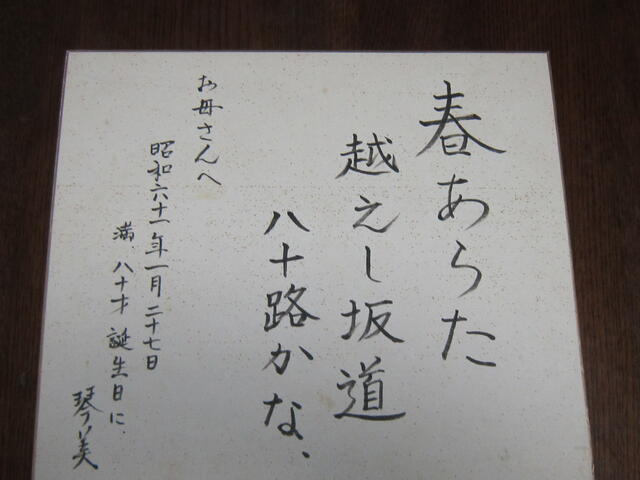 春あらた
越えし坂道
八十路かな、
お母さんへ
昭和六十一年一月二十七日
満、八十才誕生日に、
琴美